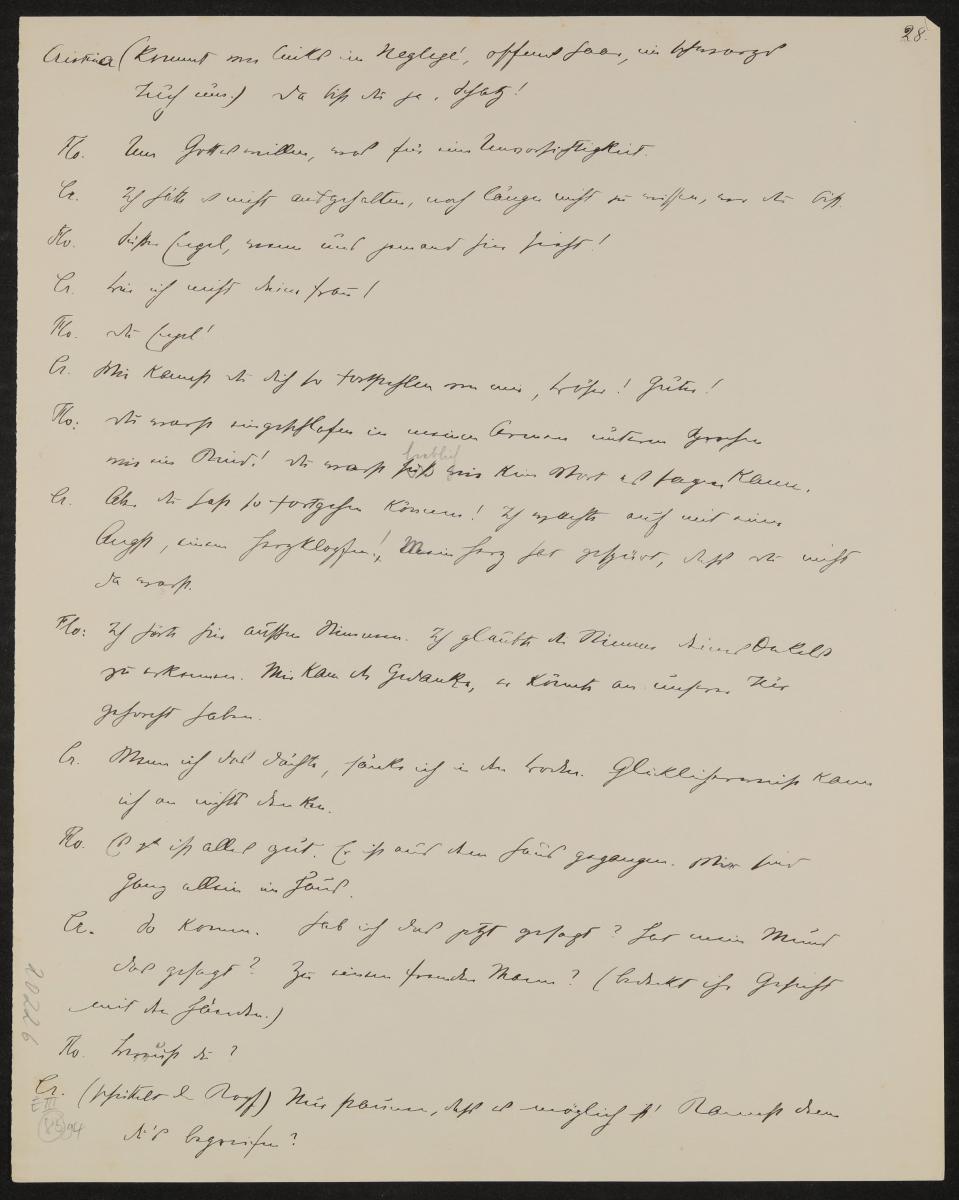 28.
Cristina (kommt von links im Negligé, offene Haar, ein schwarzes
Tuch um.) Da bist du ja, Schatz!
Flo. Um Gotteswillen, was für eine Unvorsichtigkeit.
Cr. Ich hätte es nicht ausgehalten, noch länger nicht zu wissen, wo du bist.
Flo. Süßer Engel, wenn uns jemand hier sieht!
Cr. Bin ich nicht deine Frau!
Flo. Du Engel!
Cr. Wie kannst du dich so fortstehlen von mir, Böser! Guter!
Flo: Du warst eingeschlafen in meinen Armen unterm Sprechen
wie ein Kind! Du warst süß wie kein Wort es sagen kann.
Cr. Aber du hast so fortgehen können! Ich wachte auf mit einer
Angst, einem Herzklopfen! Mein Herz hat gespürt, dass du nicht
da warst.
Flo: Ich hörte hier außen Stimmen. Ich glaubte die Stimme deines Onkels
zu erkennen. Mir kam der Gedanke, er könnte an unserer Tür
gehorcht haben.
Cr. Wenn ich das dächte, sänke ich in den Boden. Glücklicherweise kann
ich an nichts denken.
Flo. Es ist alles gut. Er ist aus dem Haus gegangen. Wir sind
ganz allein im Haus.
Cr. So komm. Hab ich das jetzt gesagt? Hat mein Mund
das gesagt? Zu einem fremden Mann? (bedeckt ihr Gesicht
mit den Händen.)
Flo. Bereust du?
Cr. (schüttelt den Kopf) Nur staunen, dass es möglich ist! Kannst denn
du's begreifen?
E III
94
20226